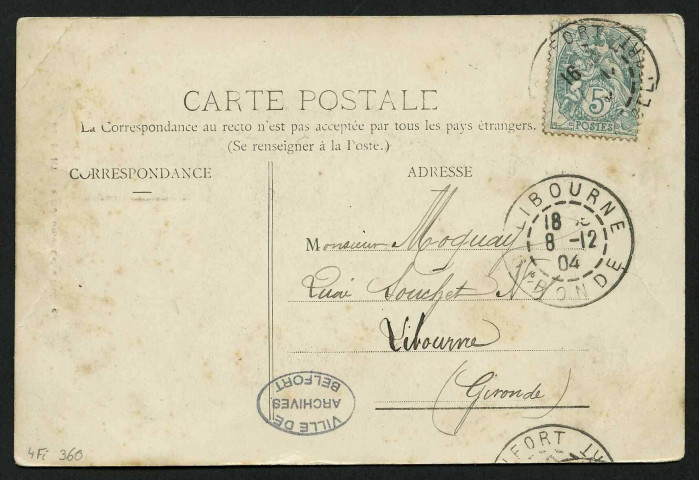 BELFORT
16
5
POSTES
CARTE POSTALE
La Correspondance au recto n'est pas acceptée par tous les pays étrangers.
(Se renseigner à la Poste.)
CORRESPONDANCE
ADRESSE
LIBOURNE
18
8 -12
04
GIRONDE
Monsieur Moquay
Quai Souchet
Libourne
(Gironde)
VILLE DE
ARCHIVES
BELFORT
BELFORT
4Fi 360